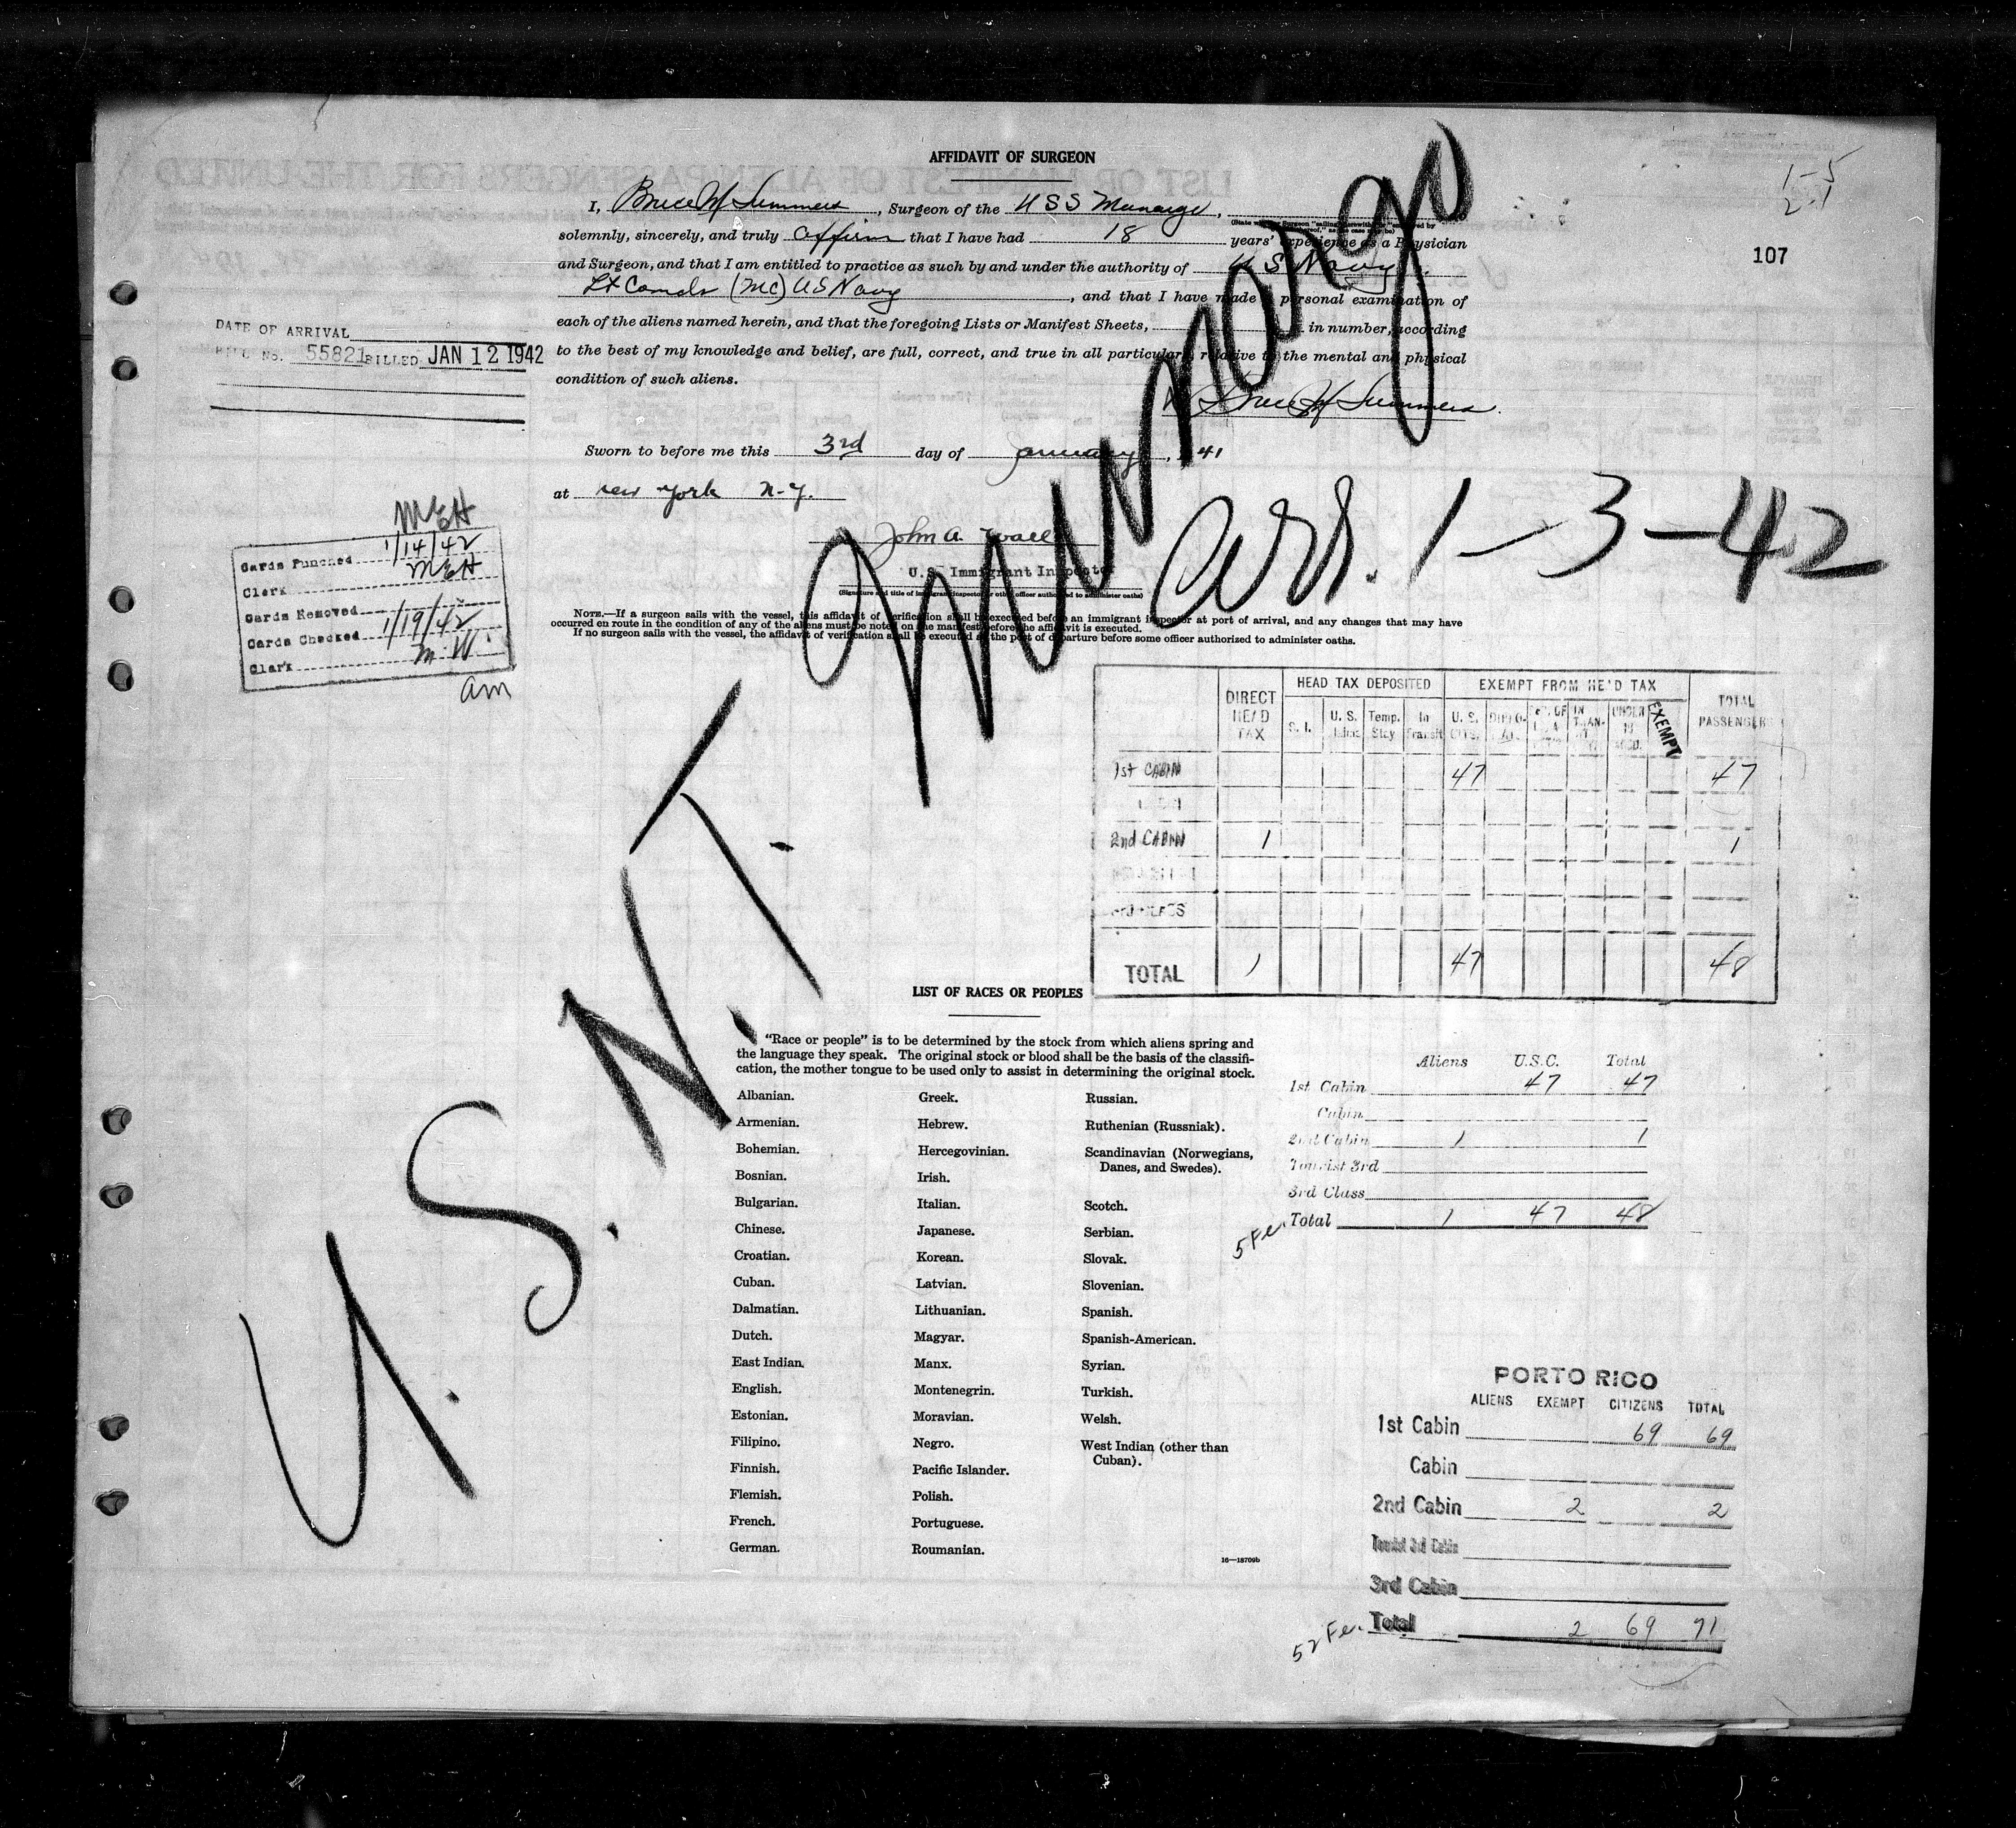 AFFIDAVIT OF SURGEON
1-5
2-1
107
I, Bruce W Summers, Surgeon of the USS Munargo,
solemnly, sincerely, and truly affirm that I have had 18 years' experience as a Physician
and Surgeon, and that I am entitled to practice as such by and under the authority of U S Navy
Lt Comdr (MC) US Navy, and that I have made personal examination of
each of the aliens named herein, and that the foregoing Lists or Manifest Sheets, in number, according
to the best of my knowledge and belief, are full, correct, and true in all particulars relative to the mental and physical
condition of such aliens.
DATE OF ARRIVAL
BILL NO. 55821 BILLED JAN 12 1942
Bruce W Summers.
Sworn to before me this 3rd day of January, 1941
at New York N.Y.
John A.
U.S. Immigrant Inspector
(Signature and title of immigrant inspector or other officer authorized to administer oaths)
NOTE.—If a surgeon sails with the vessel, this affidavit of verification shall be executed before an immigrant inspector at port of arrival, and any changes that may have
occurred en route in the condition of any of the aliens must be noted on the manifest before the affidavit is executed.
If no surgeon sails with the vessel, the affidavit of verification shall be executed at the port of departure before some officer authorized to administer oaths.
U.S.N.T. Munargo
arr. 1-3-42
MEH
Cards Punched 1/14/42
Clerk MEH
Cards Removed
Cards Checked 1/19/42
Clerk M.W.
am
DIRECT HEAD TAX
HEAD TAX DEPOSITED
EXEMPT FROM HEAD TAX
TOTAL PASSENGERS
S. I. U. S. Temp. Stay In Transit U. S. CITS. IN TRAN- UNDER 16 EXEMPT
1st CABIN 47 47
2nd CABIN 1 1
TOTAL 1 47 48
LIST OF RACES OR PEOPLES
"Race or people" is to be determined by the stock from which aliens spring and
the language they speak. The original stock or blood shall be the basis of the classifi-
cation, the mother tongue to be used only to assist in determining the original stock.
Albanian.
Armenian.
Bohemian.
Bosnian.
Bulgarian.
Chinese.
Croatian.
Cuban.
Dalmatian.
Dutch.
East Indian.
English.
Estonian.
Filipino.
Finnish.
Flemish.
French.
German.
Greek.
Hebrew.
Hercegovinian.
Irish.
Italian.
Japanese.
Korean.
Latvian.
Lithuanian.
Magyar.
Manx.
Montenegrin.
Moravian.
Negro.
Pacific Islander.
Polish.
Portuguese.
Roumanian.
Russian.
Ruthenian (Russniak).
Scandinavian (Norwegians,
Danes, and Swedes).
Scotch.
Serbian.
Slovak.
Slovenian.
Spanish.
Spanish-American.
Syrian.
Turkish.
Welsh.
West Indian (other than
Cuban).
16—18709b
Aliens U.S.C. Total
1st Cabin 47 47
Cabin
2nd Cabin 1 1
Tourist 3rd
3rd Class
5 Fe. Total 1 47 48
PORTO RICO
ALIENS EXEMPT CITIZENS TOTAL
1st Cabin 69 69
Cabin
2nd Cabin 2 2
Tourist 3rd Cabin
3rd Cabin
52 Fe. Total 2 69 71